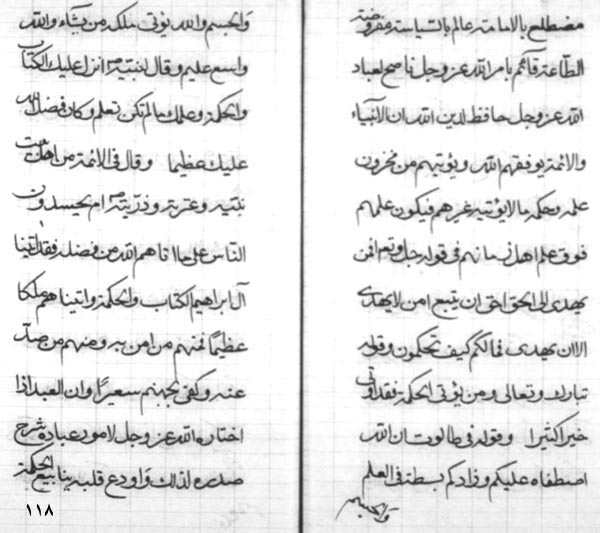 مضطلع بالامامة عالم بالسياسة مفروضة
الطاعة قائم بامر الله عز وجل ناصح لعباد
الله عز وجل حافظ لدين الله ان الانبياء
والائمة يوفقهم الله ويؤتيهم من مخزون
علمه وحكمه ما لا يؤتيه غيرهم فيكون علمهم
فوق علم اهل زمانهم في قوله جل وتع افمن
يهدى الى الحق احق ان يتبع امن لا يهدى
الا ان يهدى فما لكم كيف تحكمون وقوله
تبارك وتعالى ومن يؤتى الحكمة فقد اوتى
خيرا كثيرا وقوله في طالوت ان الله
اصطفاه عليكم وزادكم بسطة في العلم
والجسم
والجسم والله يؤتى ملكه من يشاء والله
واسع عليم وقال لنبيه ص انزل عليك الكتاب
والحكمة وعلمك ما لم تكن تعلم وكان فضل الله
عليك عظيما وقال في الائمة من اهل بيت
نبيه وعترته وذريته ص ام يحسدون
الناس على ما اتاهم الله من فضله فقد اتينا
آل ابراهيم الكتاب والحكمة واتيناهم ملكا
عظيما فمنهم من امن به ومنهم من صد
عنه وكفى بجهنم سعيرا وان العبد اذا
اختاره الله عز وجل لامور عباده شرح
صدره لذلك واودع قلبه ينابيع الحكمة
١١٨